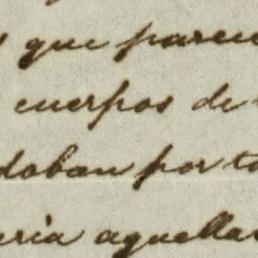 que parecí
cuerpos de
daban por to
ería aquella